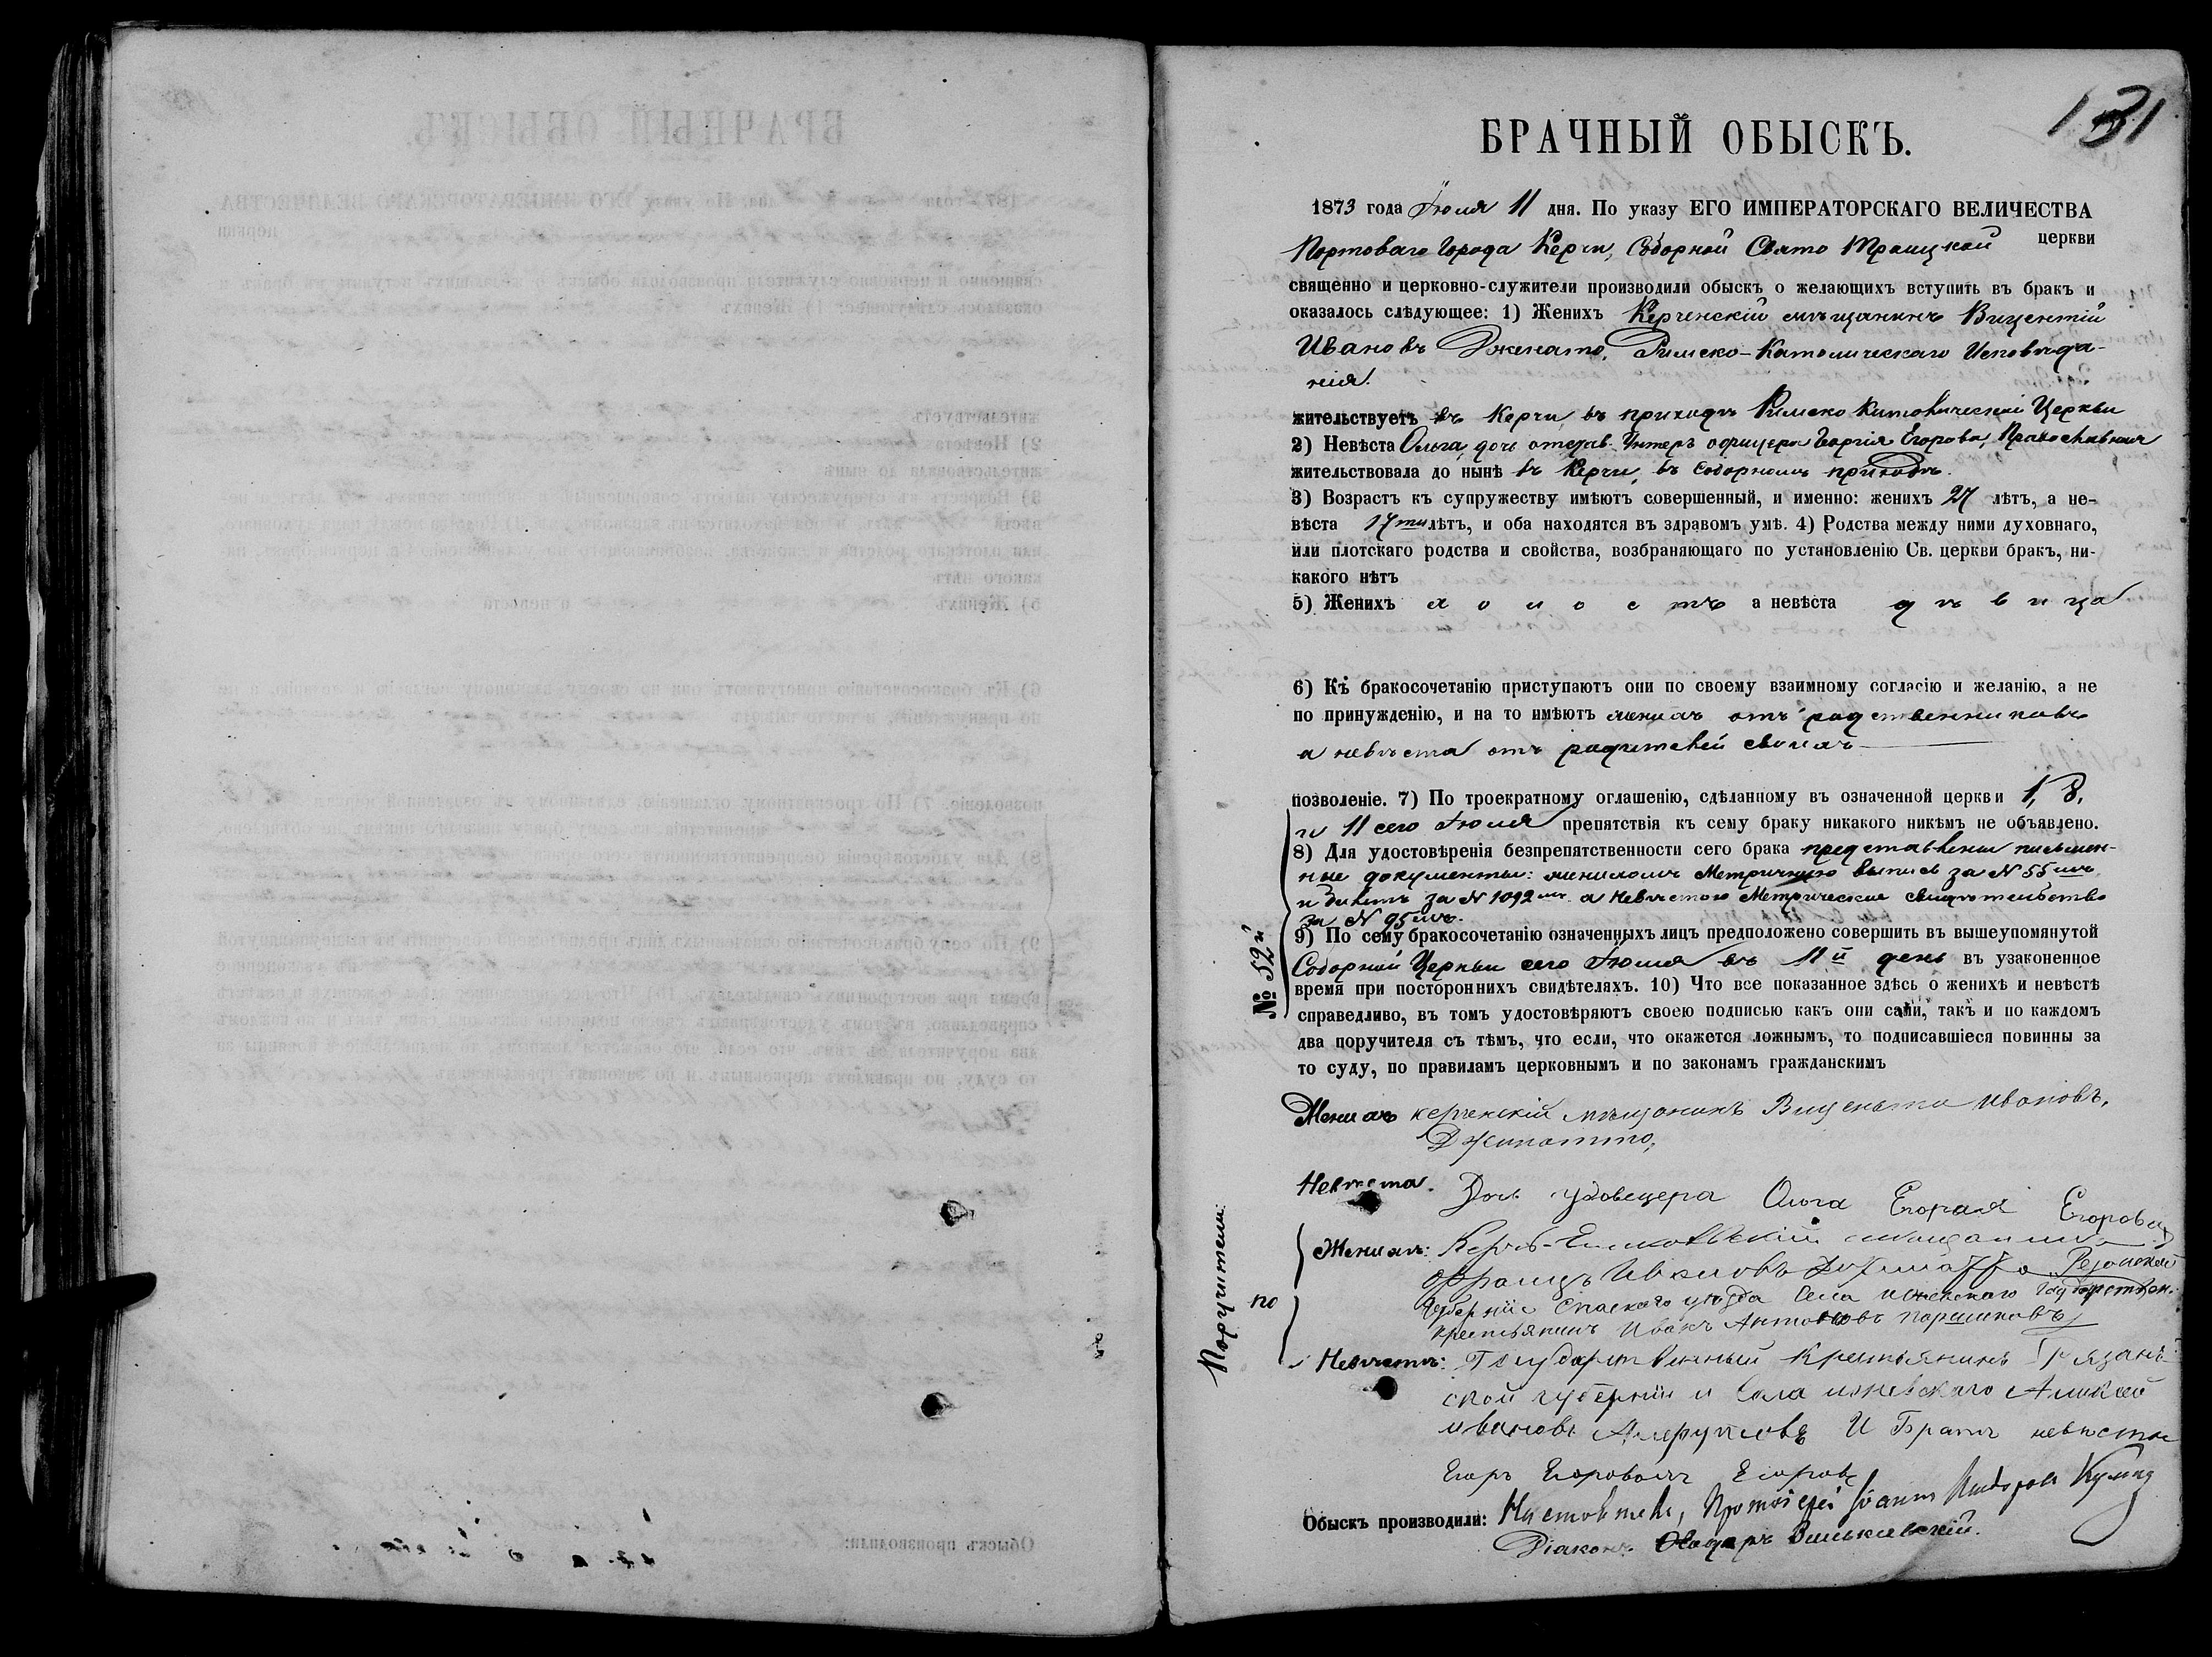 131
БРАЧНЫЙ ОБЫСКЪ.
1873 года Іюля 11 дня. По указу ЕГО ИМПЕРАТОРСКАГО ВЕЛИЧЕСТВА
Портоваго города Керчи, Соборной Свято Троицкой церкви
священно и церковно-служители производили обыскъ о желающихъ вступить въ бракъ и
оказалось слѣдующее: 1) Женихъ Керченскій мѣщанинъ Вицентій
Ивановъ Дженато, Римско-Католическаго Исповѣда-
нія.
жительствуетъ въ Керчи, въ приходѣ Римско Католической Церкви
2) Невѣста Ольга, дочь отстав. Унтеръ офицера Георгія Егорова, Православная
жительствовала до нынѣ въ Керчи, въ Соборномъ приходѣ.
3) Возрастъ къ супружеству имѣютъ совершенный, и именно: женихъ 27 лѣтъ, а не-
вѣста 17ти лѣтъ, и оба находятся въ здравомъ умѣ. 4) Родства между ними духовнаго,
или плотскаго родства и свойства, возбраняющаго по установленію Св. церкви бракъ, ни-
какого нѣтъ
5) Женихъ холостъ а невѣста дѣвица
6) Къ бракосочетанію приступаютъ они по своему взаимному согласію и желанію, а не
по принужденію, и на то имѣютъ женихъ отъ родственниковъ
а невѣста отъ родителей своихъ
позволеніе. 7) По троекратному оглашенію, сдѣланному въ означенной церкви 1, 8,
и 11 сего Іюля препятствія къ сему браку никакого никѣмъ не объявлено.
8) Для удостовѣренія безпрепятственности сего брака представлены письмен-
ные документы: женихомъ Метричную выпись за № 55мъ
и билетъ за № 1092мъ а Невѣстою Метрическое свидѣтельство
за № 95мъ.
9) По сему бракосочетанію означенныхъ лицъ предположено совершить въ вышеупомянутой
Соборной Церкви сего Іюля въ 11й день въ узаконенное
время при постороннихъ свидѣтеляхъ. 10) Что все показанное здѣсь о женихѣ и невѣстѣ
справедливо, въ томъ удостовѣряютъ своею подписью какъ они сами, такъ и по каждомъ
два поручителя съ тѣмъ, что если, что окажется ложнымъ, то подписавшіеся повинны за
то суду, по правиламъ церковнымъ и по законамъ гражданскимъ
№ 52й
Женихъ керченскій мѣщанинъ Виценьтій Ивановъ,
Джинатто,
Невѣста. Дочь Ольга Егорова
Поручители:
по
Женихѣ: Керчь-Еникольскій мѣщанинъ
Францъ Ивановъ
Губерніи Спаскаго уѣзда Села Ижевскаго
крестьянинъ Иванъ Антоновъ Паршиковъ
Невѣстѣ: Государственный Крестьянинъ Рязань
ской губерніи и Села ижевскаго Алексей
ивановъ И Братъ невѣсты
Егоръ Егоровъ
Обыскъ производили: Настоятель, Протоіерей Іоаннъ
Діаконъ
Обыскъ производили: